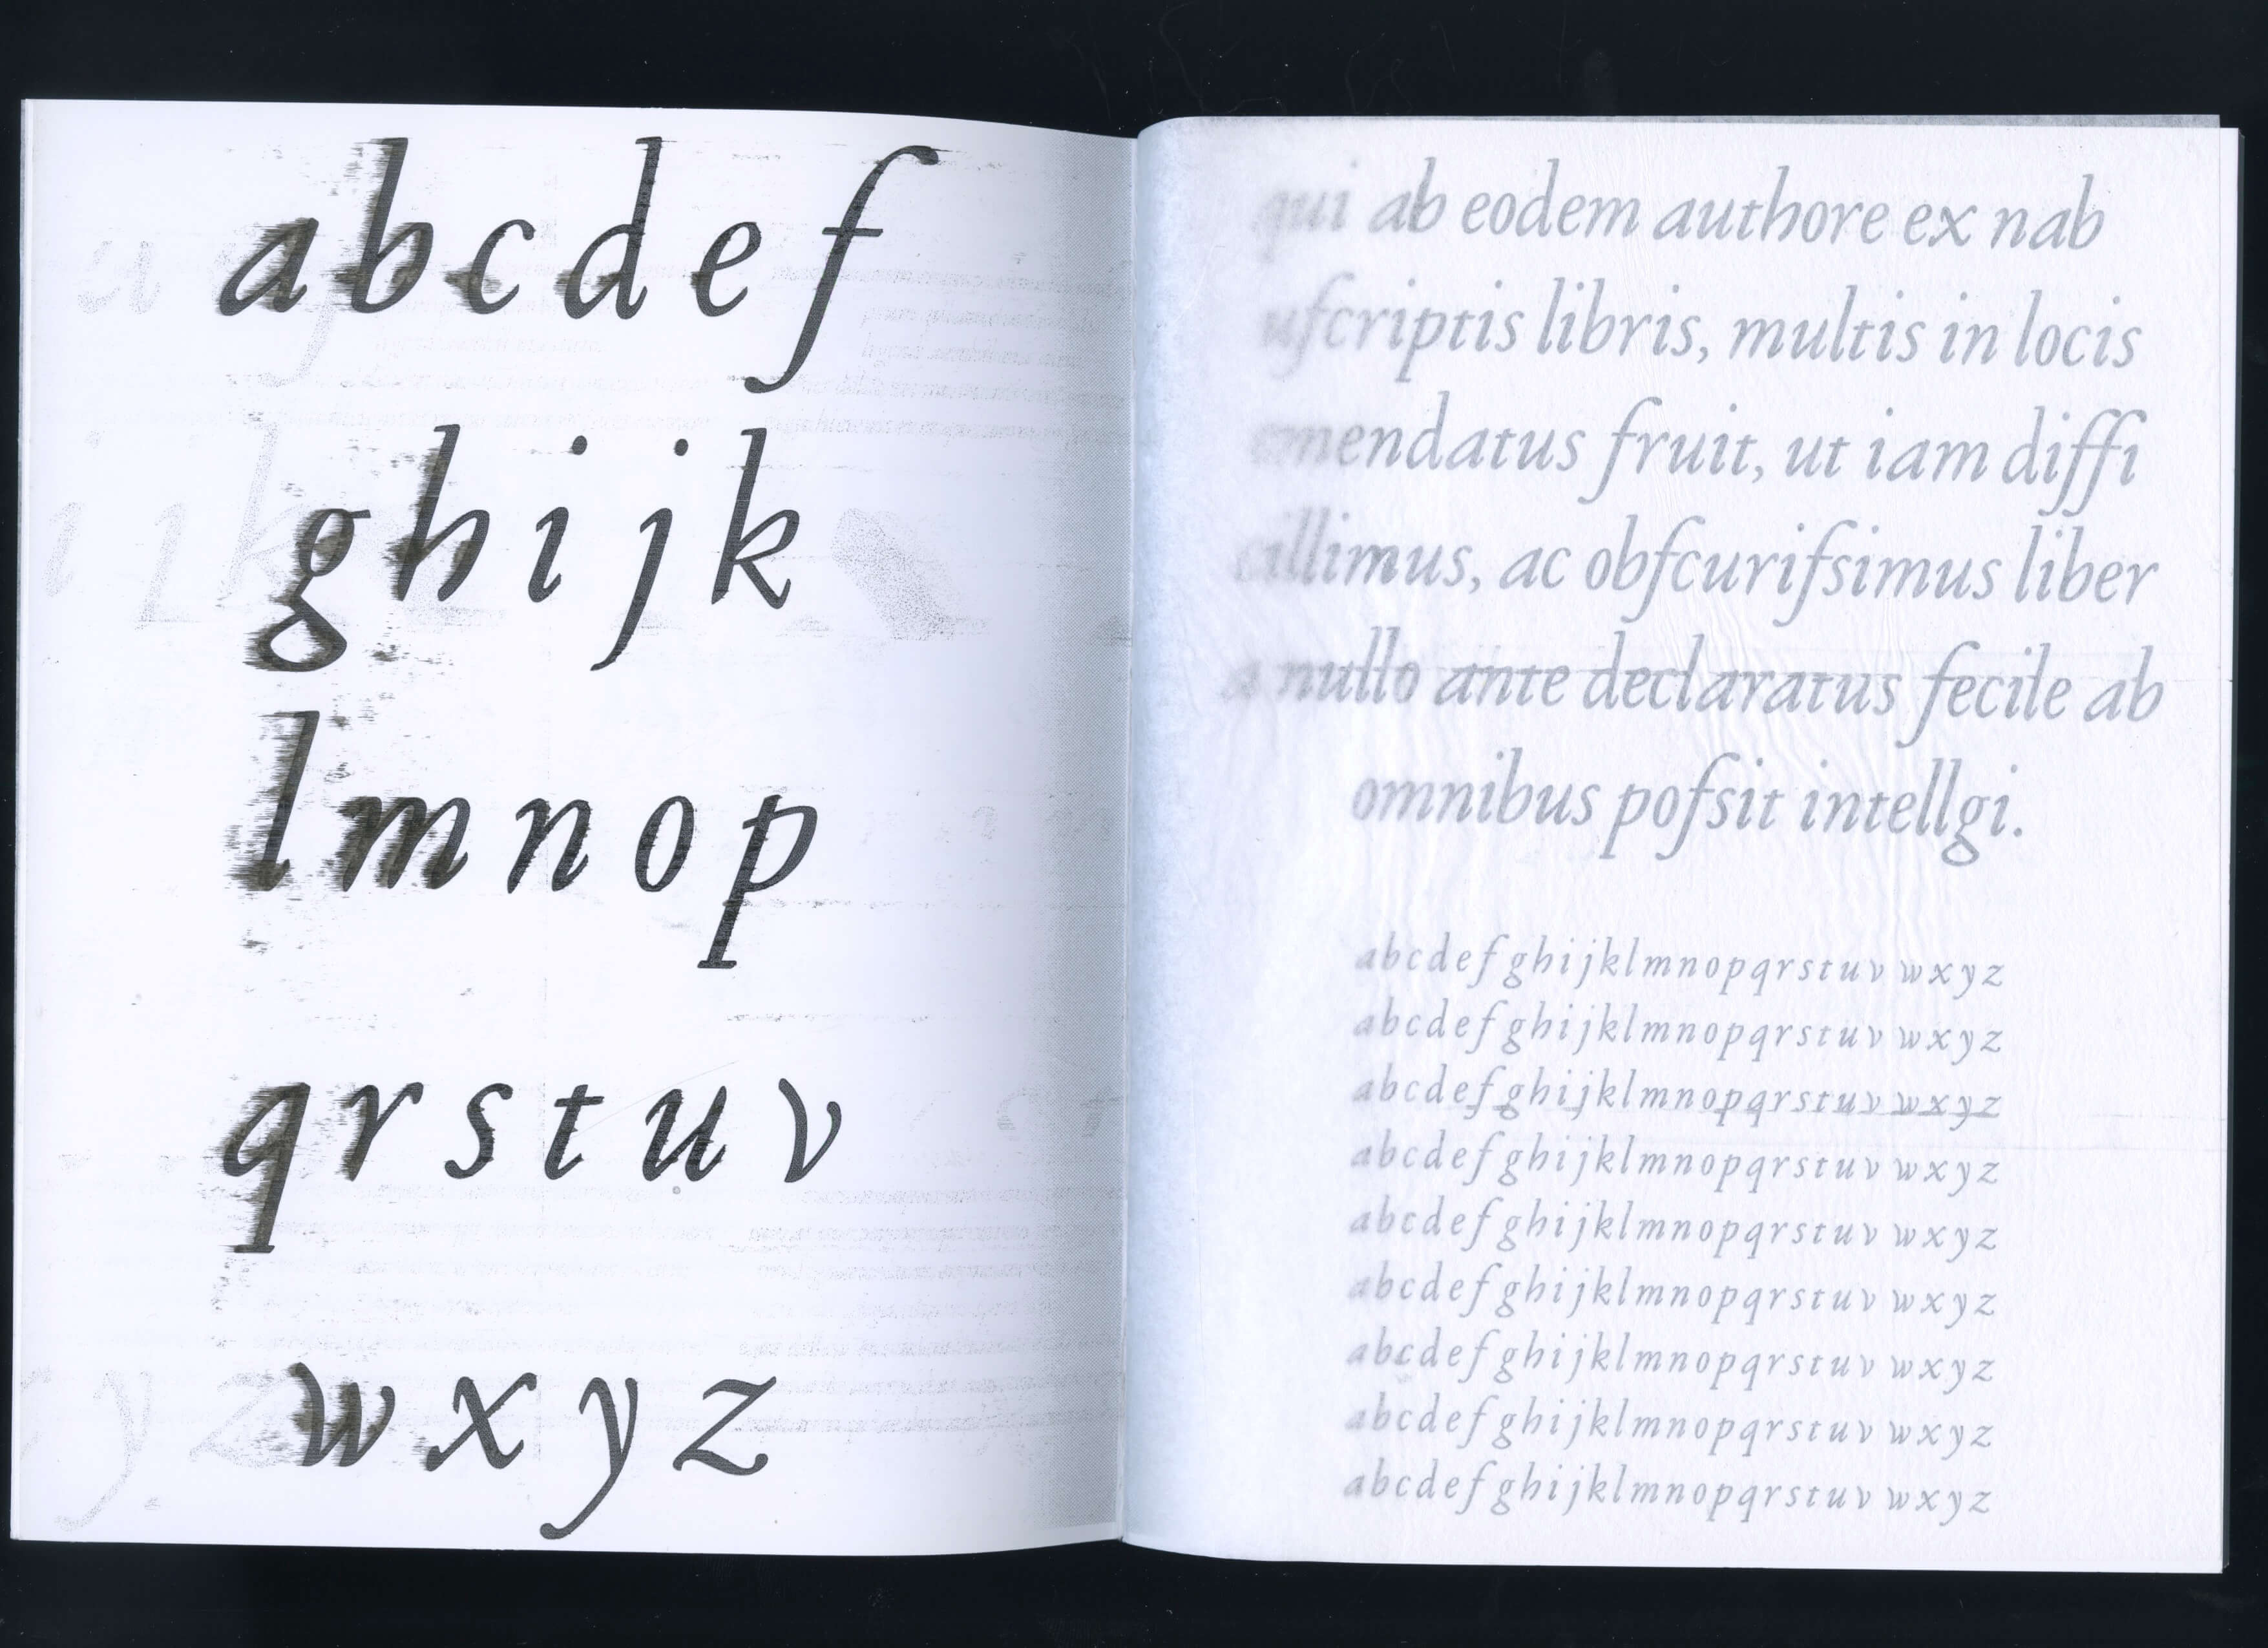 a b c d e f
g h i j k
l m n o p
q r s t u v
w x y z
qui ab eodem authore ex nab
ufcriptis libris, multis in locis
emendatus fruit, ut iam diffi
cillimus, ac obfcurifsimus liber
a nullo ante declaratus fecile ab
omnibus pofsit intellgi.
a b c d e f g h i j k l m n o p q r s t u v w x y z
a b c d e f g h i j k l m n o p q r s t u v w x y z
a b c d e f g h i j k l m n o p q r s t u v w x y z
a b c d e f g h i j k l m n o p q r s t u v w x y z
a b c d e f g h i j k l m n o p q r s t u v w x y z
a b c d e f g h i j k l m n o p q r s t u v w x y z
a b c d e f g h i j k l m n o p q r s t u v w x y z
a b c d e f g h i j k l m n o p q r s t u v w x y z
a b c d e f g h i j k l m n o p q r s t u v w x y z